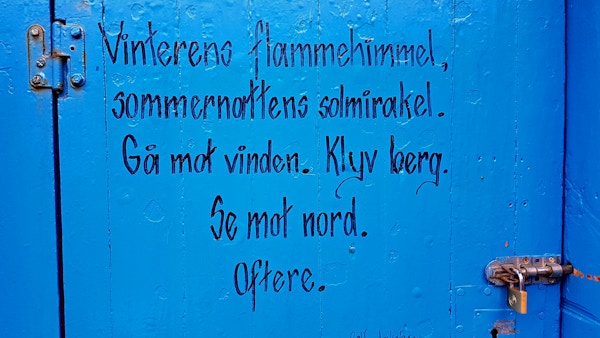 Vinterens flammehimmel,
sommernattens solmirakel.
Gå mot vinden. Klyv berg.
Se mot nord.
Oftere.